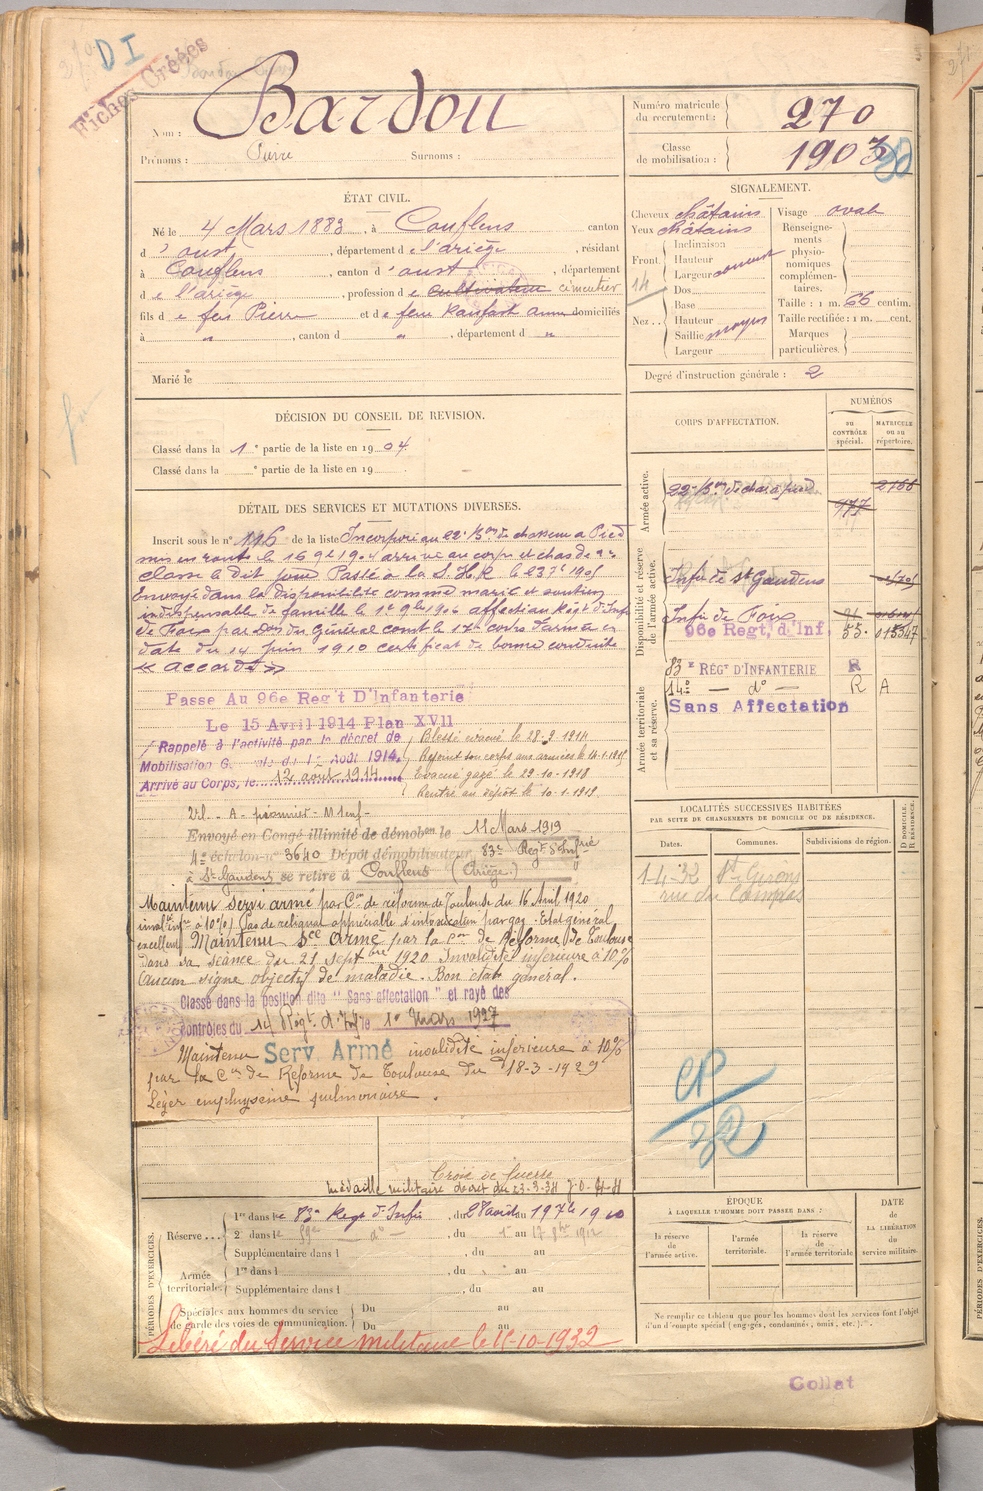 DI
Fiches Créées
Nom : Bardou
Prénoms : Pierre Surnoms :
Numéro matricule du recrutement : 270
Classe de mobilisation : 1903
ÉTAT CIVIL.
Né le 4 Mars 1883, à Couflens canton
d'oust, département de l'ariège, résidant
à Couflens, canton d'oust, département
de l'ariège, profession de cultivateur cimentier
fils de feu Pierre et de feue domiciliés
à " , canton d " , département d "
Marié le
SIGNALEMENT.
Cheveux châtains
Yeux châtains
Front. Inclinaison
Hauteur
Largeur
14
Nez.. Dos
Base
Hauteur
Saillie moyen
Largeur
Visage oval
Renseignements physionomiques complémentaires.
Taille : 1 m. 66 centim.
Taille rectifiée : 1 m. cent.
Marques particulières.
Degré d'instruction générale : 2
DÉCISION DU CONSEIL DE REVISION.
Classé dans la 1e partie de la liste en 1904.
Classé dans la e partie de la liste en 19
CORPS D'AFFECTATION.
NUMÉROS
au CONTRÔLE spécial.
MATRICULE ou au répertoire.
Armée active.
22e Bon de chas à pied 2166
977
Disponibilité et réserve de l'armée active.
Infie de St Gaudens
Infie de Foix
96e Regt, d'Inf. 55. 015547
Armée territoriale et sa réserve.
83e RÉGt D'INFANTERIE R
14e — do — R A
Sans Affectation
DÉTAIL DES SERVICES ET MUTATIONS DIVERSES.
Inscrit sous le n° 116 de la liste Incorporé au 22e Bon de chasseurs à Pied
mis en route le 16 9bre 1904 arrivé au corps et chas de 2e
classe le dit jour Passé à la S.H.R. le 1905
Envoyé dans la disponibilité comme marié et soutien
indispensable de famille le 1e 9bre 1906 affecté au Régt d'Infie
de Foix par don du Général comt le 17e corps d'armée en
date du 14 Juin 1910 certificat de bonne conduite
« accordé »
Passe Au 96e Reg't D'Infanterie
Le 15 Avril 1914 Plan XVII
Rappelé à l'activité par le décret de
Mobilisation G du 1er Août 1914.
Arrivé au Corps, le 12 aout 1914
Blessé evacué le 28-9-1914
Rejoint son corps aux armées le 14-1-1915
Evacué gazé le 29-10-1918
Rentré au dépôt le 10-1-1919
Envoyé en Congé illimité de démobon le 11 Mars 1919
4e échelon n° 3640 Dépôt démobilisateur 83e Regt d'Infrie
à St Gaudens se retire à Couflens (Ariège.)
Maintenu servi armé par Con de réforme de Toulouse du 16 Avril 1920
inval. infre à 10%) Pas de reliquat appréciable d'intoxication par gaz. Etat général
excellent Maintenu Sce Armé par la Con de Réforme de Toulouse
dans sa séance du 21 septbre 1920 Invalidité inférieure à 10%
Aucun signe objectif de maladie. Bon état général.
Classé dans la position dite "Sans affectation" et rayé des
contrôles du 14 Régt d'Infie le 1er mars 1927
Maintenu Serv. Armé invalidité inférieure à 10%
par la Con de Réforme de Toulouse du 18-3-1929
Léger emphysème pulmonaire.
LOCALITÉS SUCCESSIVES HABITÉES
PAR SUITE DE CHANGEMENTS DE DOMICILE OU DE RÉSIDENCE.
Dates. Communes. Subdivisions de région. D DOMICILE. R RÉSIDENCE.
1-4-32 St-Girons
rue du Campas
CP
32
Croix de Guerre
Médaille militaire décret du 23-3-38
PÉRIODES D'EXERCICES.
Réserve... 1re dans le 83e Regt d'Infie, du 28 avril au 1910
2e dans le 59e do, du 1 au 17 8bre 1912
Supplémentaire dans l , du au
Armée territoriale. 1re dans l , du au
Supplémentaire dans l , du au
Spéciales aux hommes du service de garde des voies de communication. Du au
Du au
Libéré du Service militaire le 15-10-1932
ÉPOQUE
À LAQUELLE L'HOMME DOIT PASSER DANS :
la réserve de l'armée active.
l'armée territoriale.
la réserve de l'armée territoriale
DATE de LA LIBÉRATION du service militaire.
Ne remplir ce tableau que pour les hommes dont les services font l'objet
d'un décompte spécial (engagés, condamnés, omis, etc.).
Collat